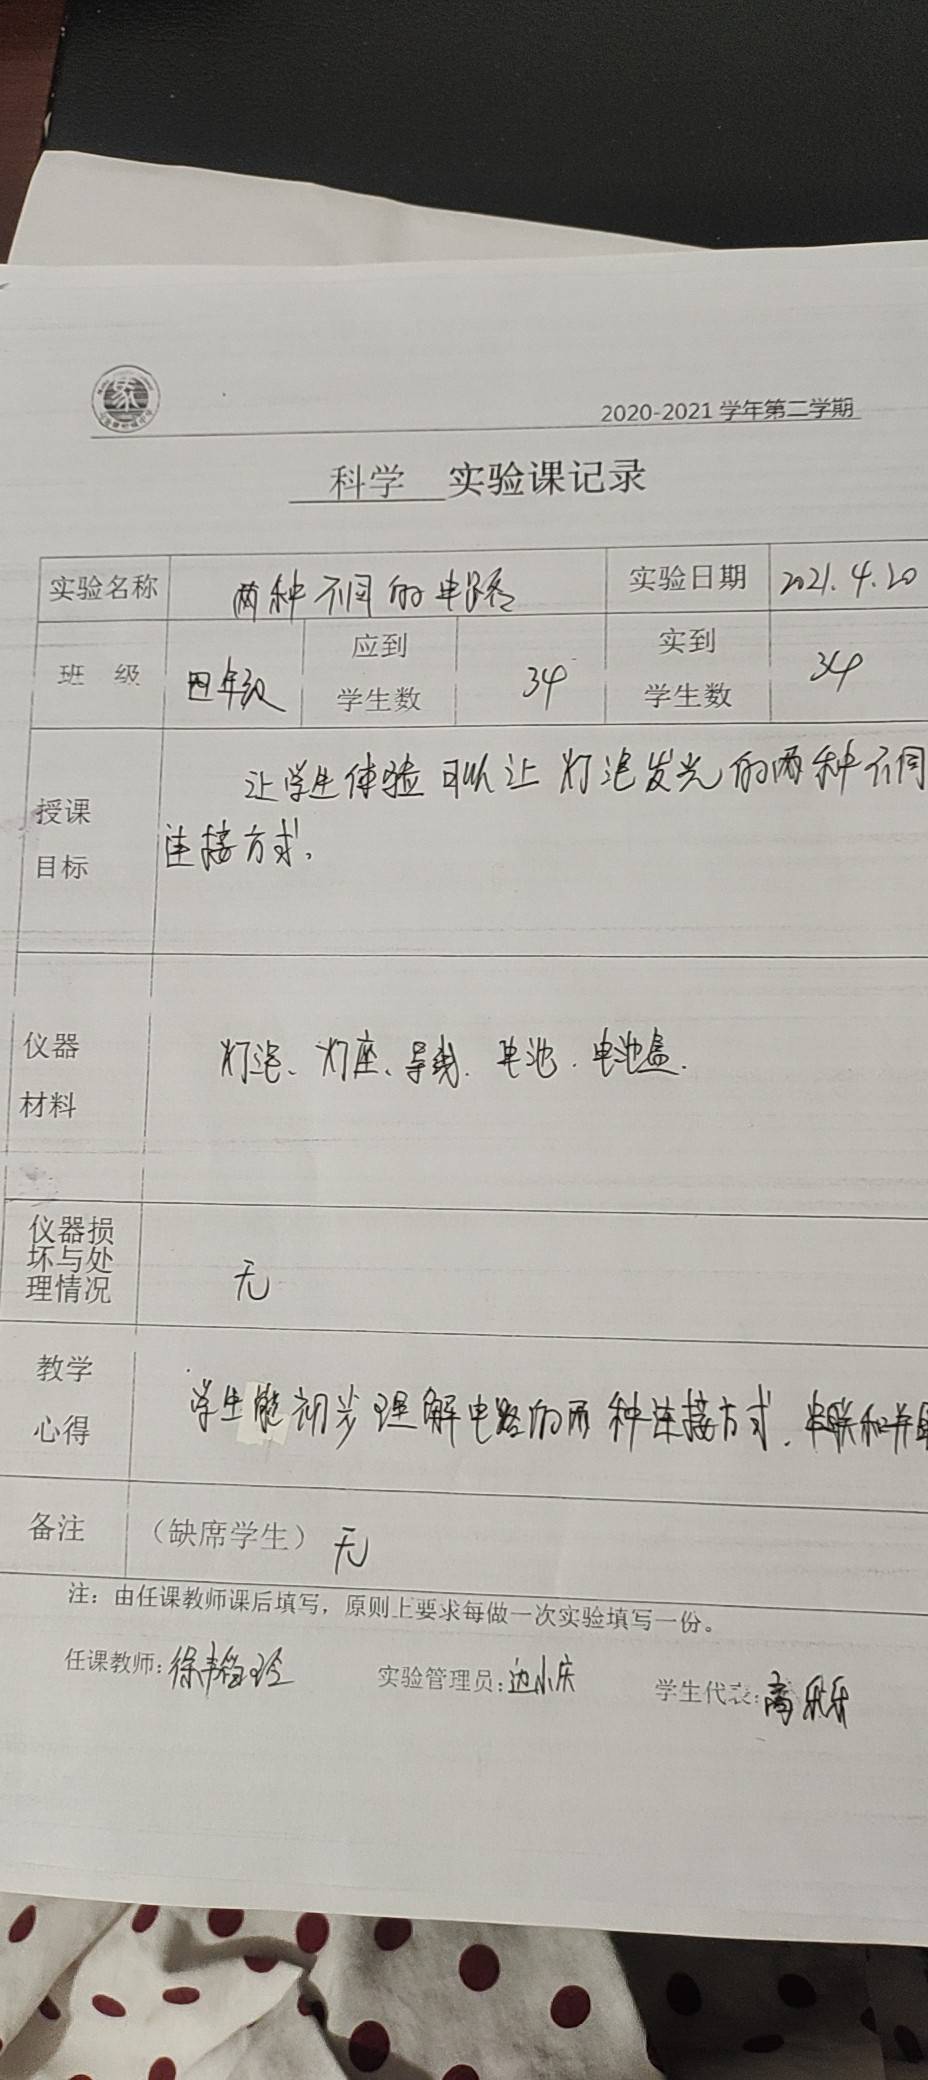 2020-2021 学年第二学期
科学 实验课记录
实验名称 两种不同的电路 实验日期 2021.4.20
班 级 四年级 应到学生数 34 实到学生数 34
授课目标 让学生体验可以让灯泡发光的两种不同
连接方式。
仪器材料 灯泡、灯座、导线、电池、电池盒.
仪器损坏与处理情况 无
教学心得 学生能初步理解电路的两种连接方式.串联和并联
备注 （缺席学生） 无
注：由任课教师课后填写，原则上要求每做一次实验填写一份。
任课教师: 实验管理员:边小庆 学生代表: